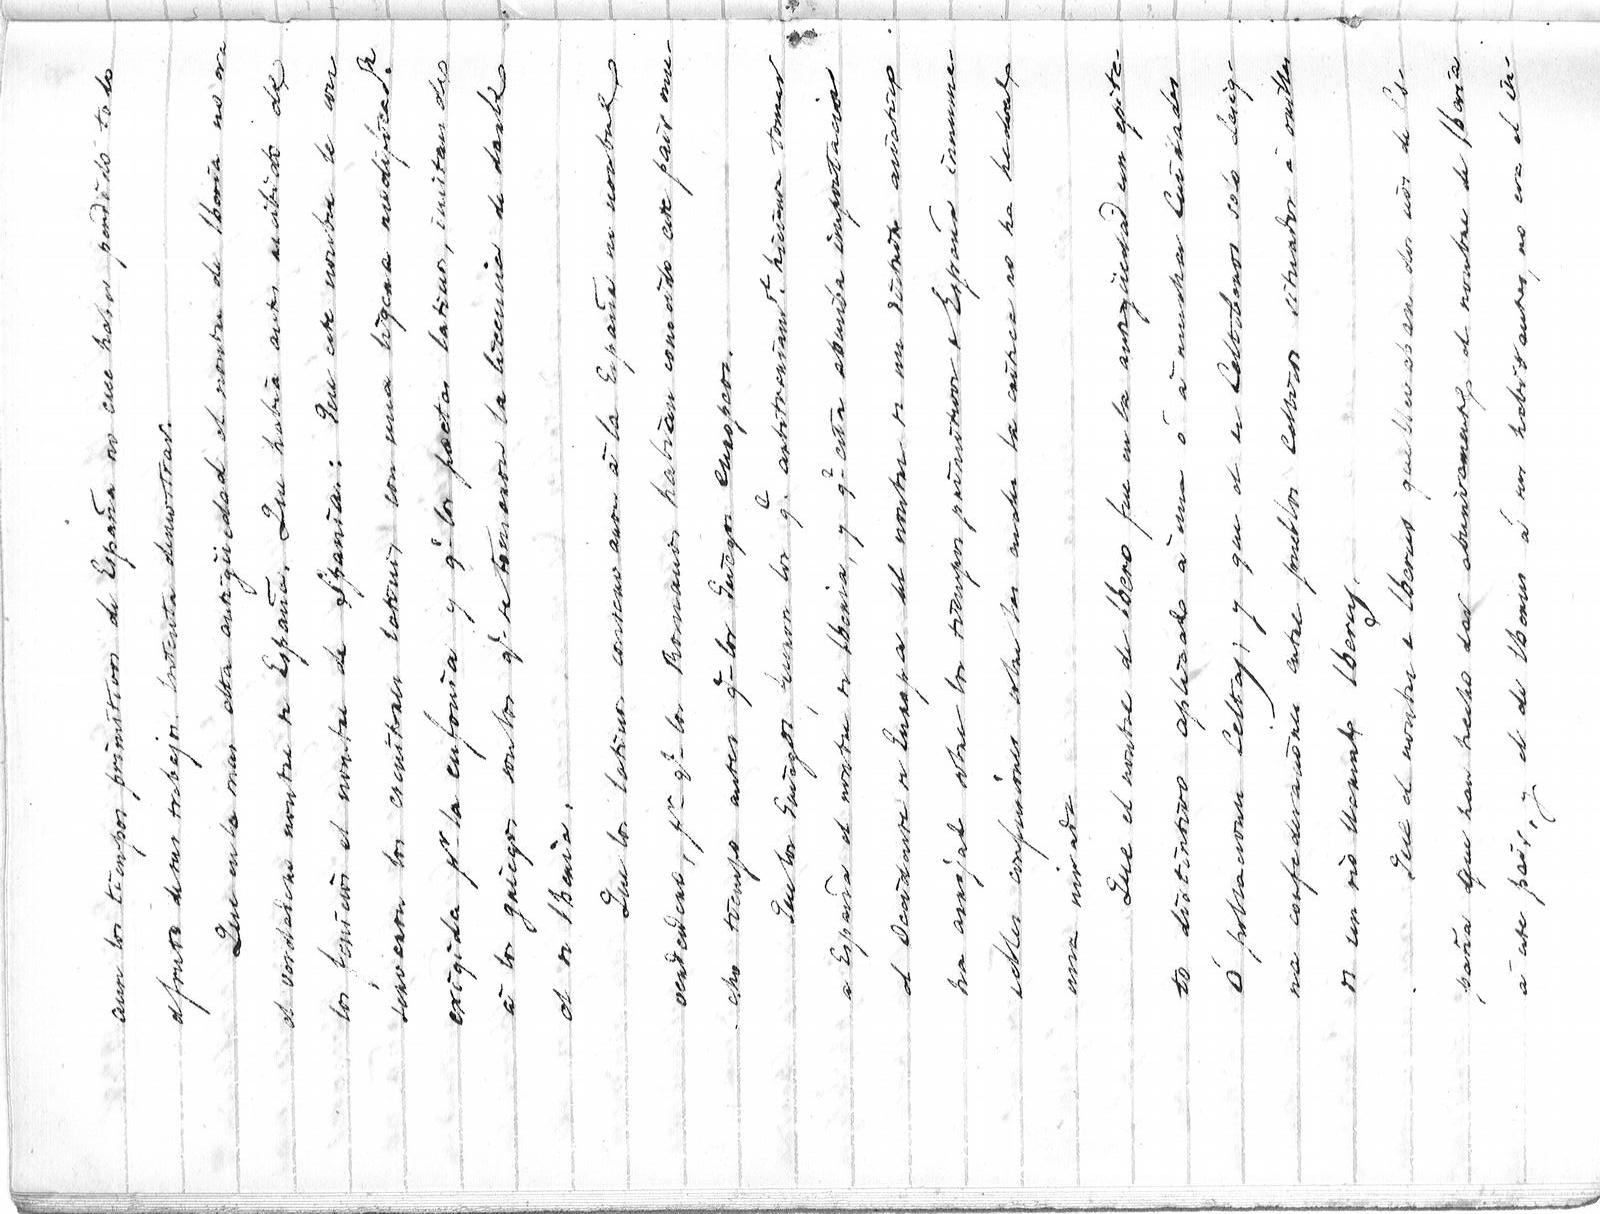 aun los tiempos primitivos de España no cree haber perdido todo
el fruto de sus trabajos. Intenta demostrar.
Que en la mas alta antigüedad el nombre de Iberia no era
el verdadero nombre de España. Que habia antes recibido de
los fenicios el nombre de Spania: Que este nombre le con
servaron los escritores latinos, con una ligera modificac.ⁿ
exigida p.r la eufonia y q.e los poetas latinos, imitando
á los griegos son los q.e se tomaron la licencia de darle
el de Iberia.
Que los latinos conservaron á la España su nombre
verdadero, p.r q.e los Romanos habian conocido este pais mu-
cho tiempo antes q.e los Griegos europeos.
Que los Griegos, fueron los q.e arbitrariam.te hicieron tomar
a España el nombre de Iberia, y q.e esta absurda importacion
al Occidente de Europa del nombre de un distrito asiatico
ha arrojado sobre los tiempos primitivos de España innume-
rables confusiones sobre las cuales la critica no ha hechado
una mirada
Que el nombre de Ibero fue en la antigüedad un epite-
to distintivo aplicado á una ó á muchas Ciudades
ó poblaciones Celtas; y que el de Celtiberos solo desig-
na confederaciones entre pueblos Celticos situados á orillas
de un rio llamado Iberus.
Que el nombre de Iberus que llevaba un rio de Es-
paña que han hecho dar abusivamente el nombre de Iberia
á este pais, y el de Iberos á sus habitantes, no era el